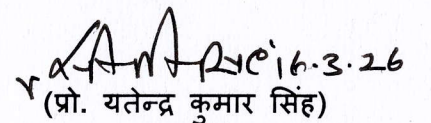 16.3.26
(प्रो. यतेन्द्र कुमार सिंह)